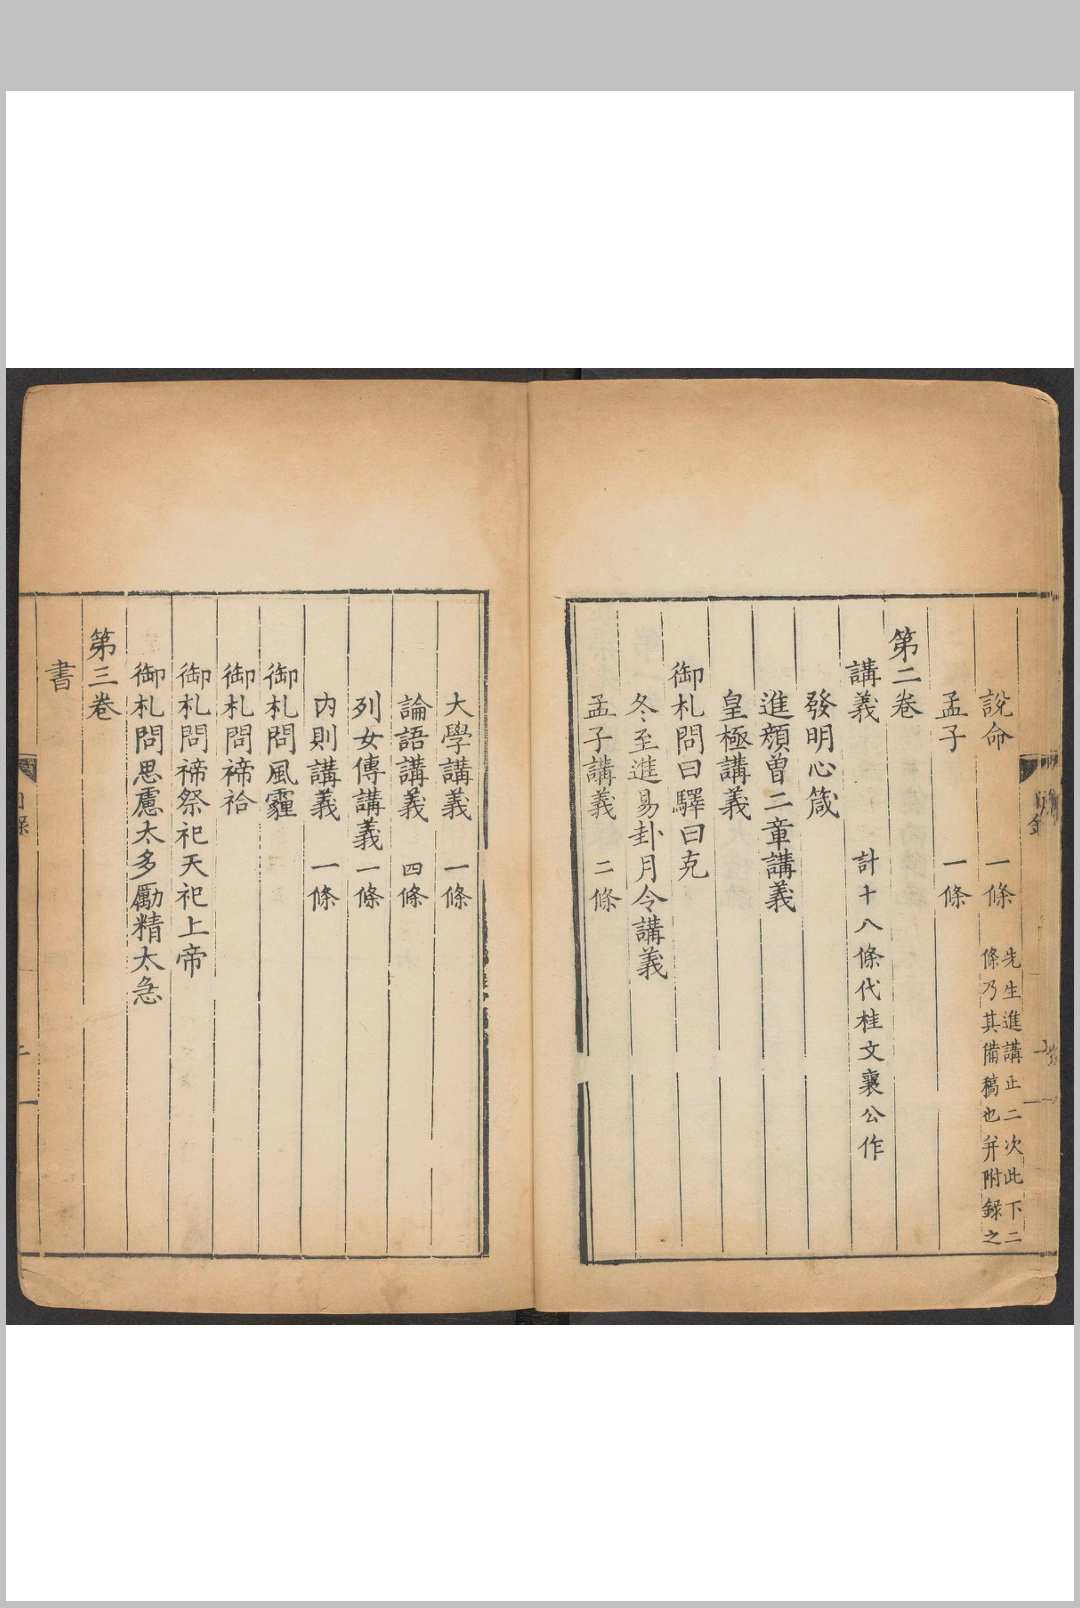 說命 一條 先生進講正二次此下二條乃其備稿也并附錄之
孟子 一條
第二卷
講義 計十八條代桂文襄公作
發明心箴
進顏曾二章講義
皇極講義
御札問曰驛曰克
冬至進易卦月令講義
孟子講義 二條
大學講義 一條
論語講義 四條
列女傳講義 一條
內則講義 一條
御札問風霾
御札問禘祫
御札問禘祭祀天祀上帝
御札問思慮太多勵精太急
第三卷
書